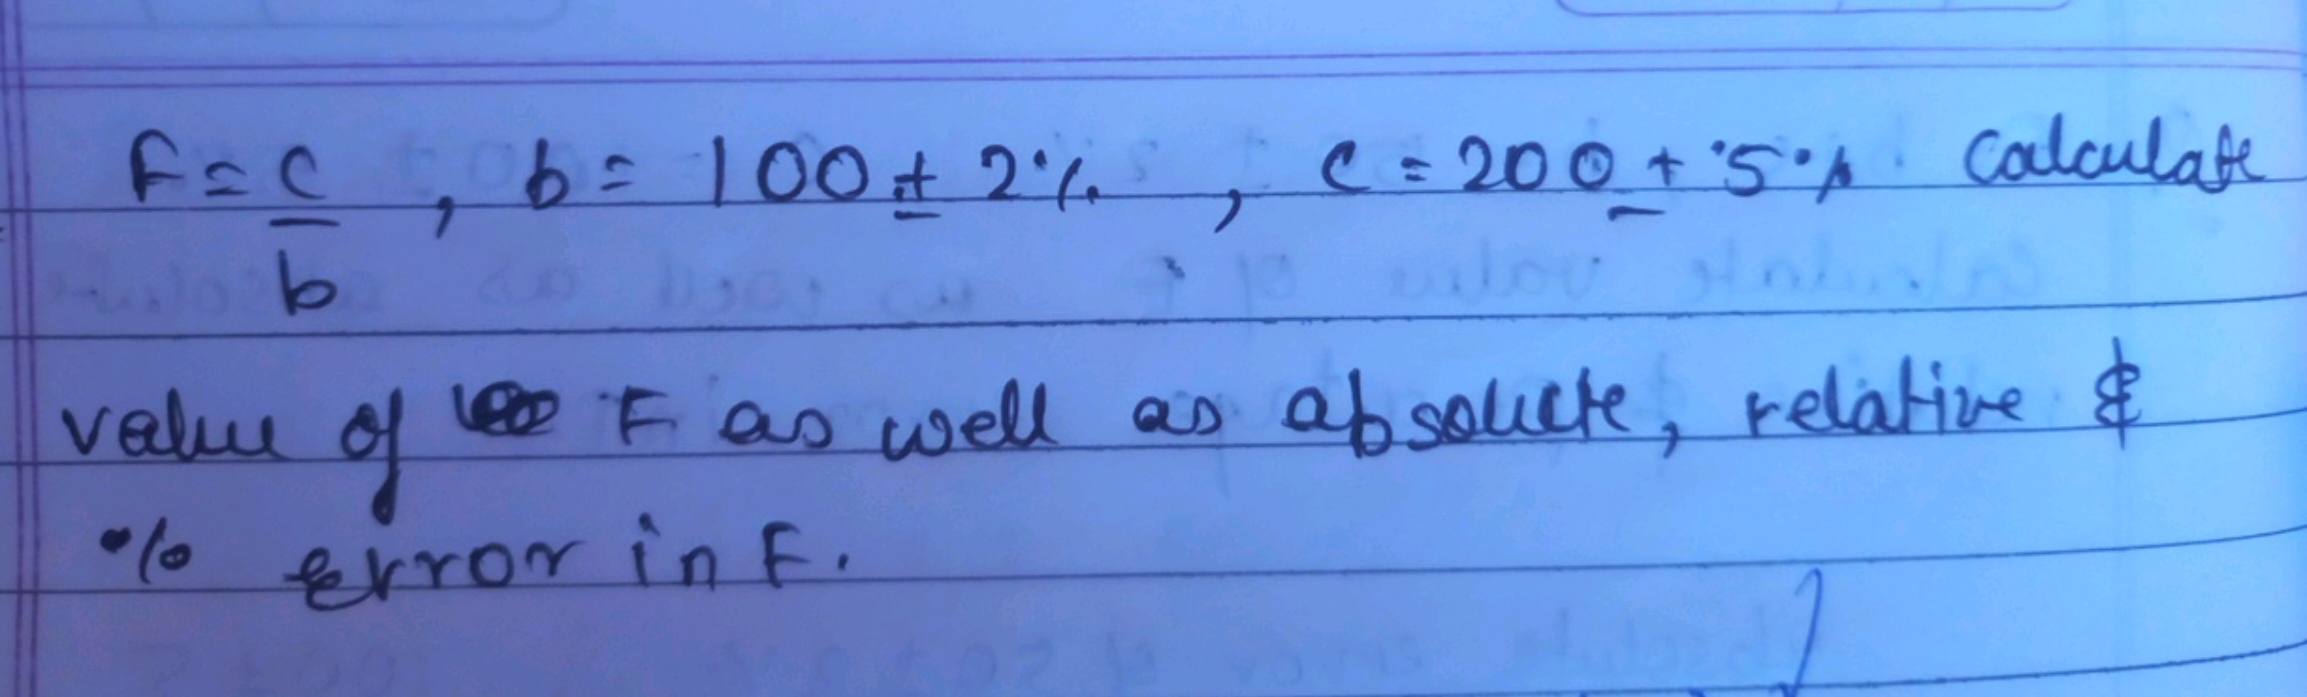 F = c/b , b = 100 ± 2% , c = 200 ± 5% Calculate
value of F as well as absolute, relative &
% error in F.